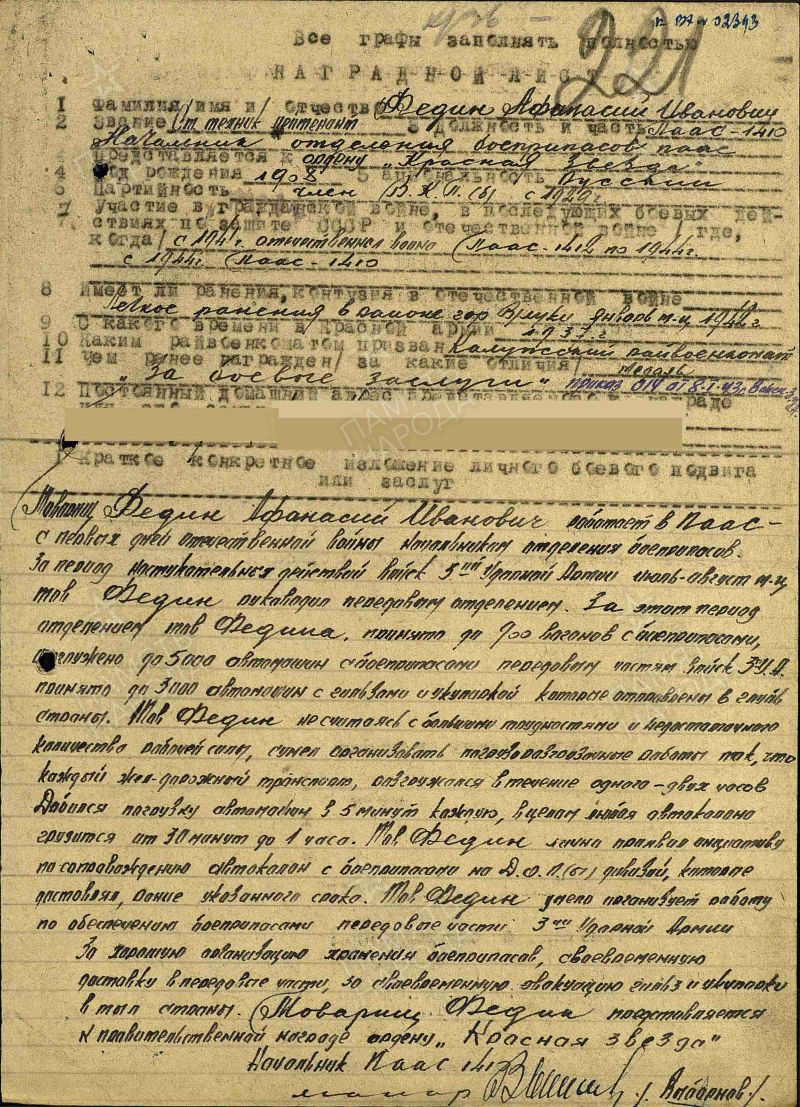 п 137 и 02343
221
Все графы заполнять полностью
НАГРАДНОЙ ЛИСТ
1 Фамилия/имя и/ отчество Федин Афанасий Иванович
2 Звание Ст техник лейтенант 3 должность и часть ПААС-1410
Начальник отделения боеприпасов ПААС
4 Представляется к ордену „Красная Звезда"
4 Год рождения 1908 5 Национальность Русский
6 Партийность член В.К.П.(б) с 1929г
7 Участие в гражданской войне, в последующих боевых дей-
ствиях по защите СССР и отечественной войне / где,
когда/ с 1941г. отечественная война ПААС-1412 по 1944г.
с 1944г. ПААС-1410
8 Имеет ли ранения, контузия в отечественной войне
Легкое ранения в районе гор В луки январь м-ц 1942г
9 С какого времени в Красной армии 1937г.
10 Каким райвоенкоматом призван Калужский райвоенкомат
11 Чем ранее награжден/ за какие отличия/ медаль
„За боевые заслуги" приказ 014 от 8.1.43г.
12 Постоянный домашний адрес представляемого к награде
1 Краткое конкретное изложение личного боевого подвига
или заслуг
Товарищ Федин Афанасий Иванович работает в ПААС-
с первых дней отечественной войны начальником отделения боеприпасов.
За период наступательных действий войск 3ей Ударной Армии июль-август м-ц
тов Федин руководил передовым отделением. За этот период
отделением тов Федина, принято до 900 вагонов с боеприпасами,
отгружено до 5000 автомашин с боеприпасами передовым частям войск 3 У.А.
принято до 3000 автомашин с гильзами и укупоркой которые отправлены в глубь
страны. Тов Федин не считаясь с большими трудностями и недостаточного
количества рабочей силы, сумел организовать погрузоразгрузочные работы так, что
каждый жел-дорожный транспорт, разгружался в течение одного-двух часов
Добился погрузку автомашин в 5 минут каждую, в целом любая автоколона
грузится от 30 минут до 1 часа. Тов Федин лично проявлял инциативу
по сопровождению автоколон с боеприпасами на Д.О.П.(ы) дивизий, которые
доставлял, ранее указанного срока. Тов Федин умело организует работу
по обеспечению боеприпасами передовые части 3ей Ударной Армии
За хорошую организацию хранения боеприпасов, своевременную
доставку в передовые части, за своевременную эвакуацию гильз и укупорки
в тыл страны. Товарищ Федин представляется
к правительственной награде ордену „Красная звезда"
Начальник ПААС 141
майор /. Выборнов /.
ПАМЯТЬ НАРОДА